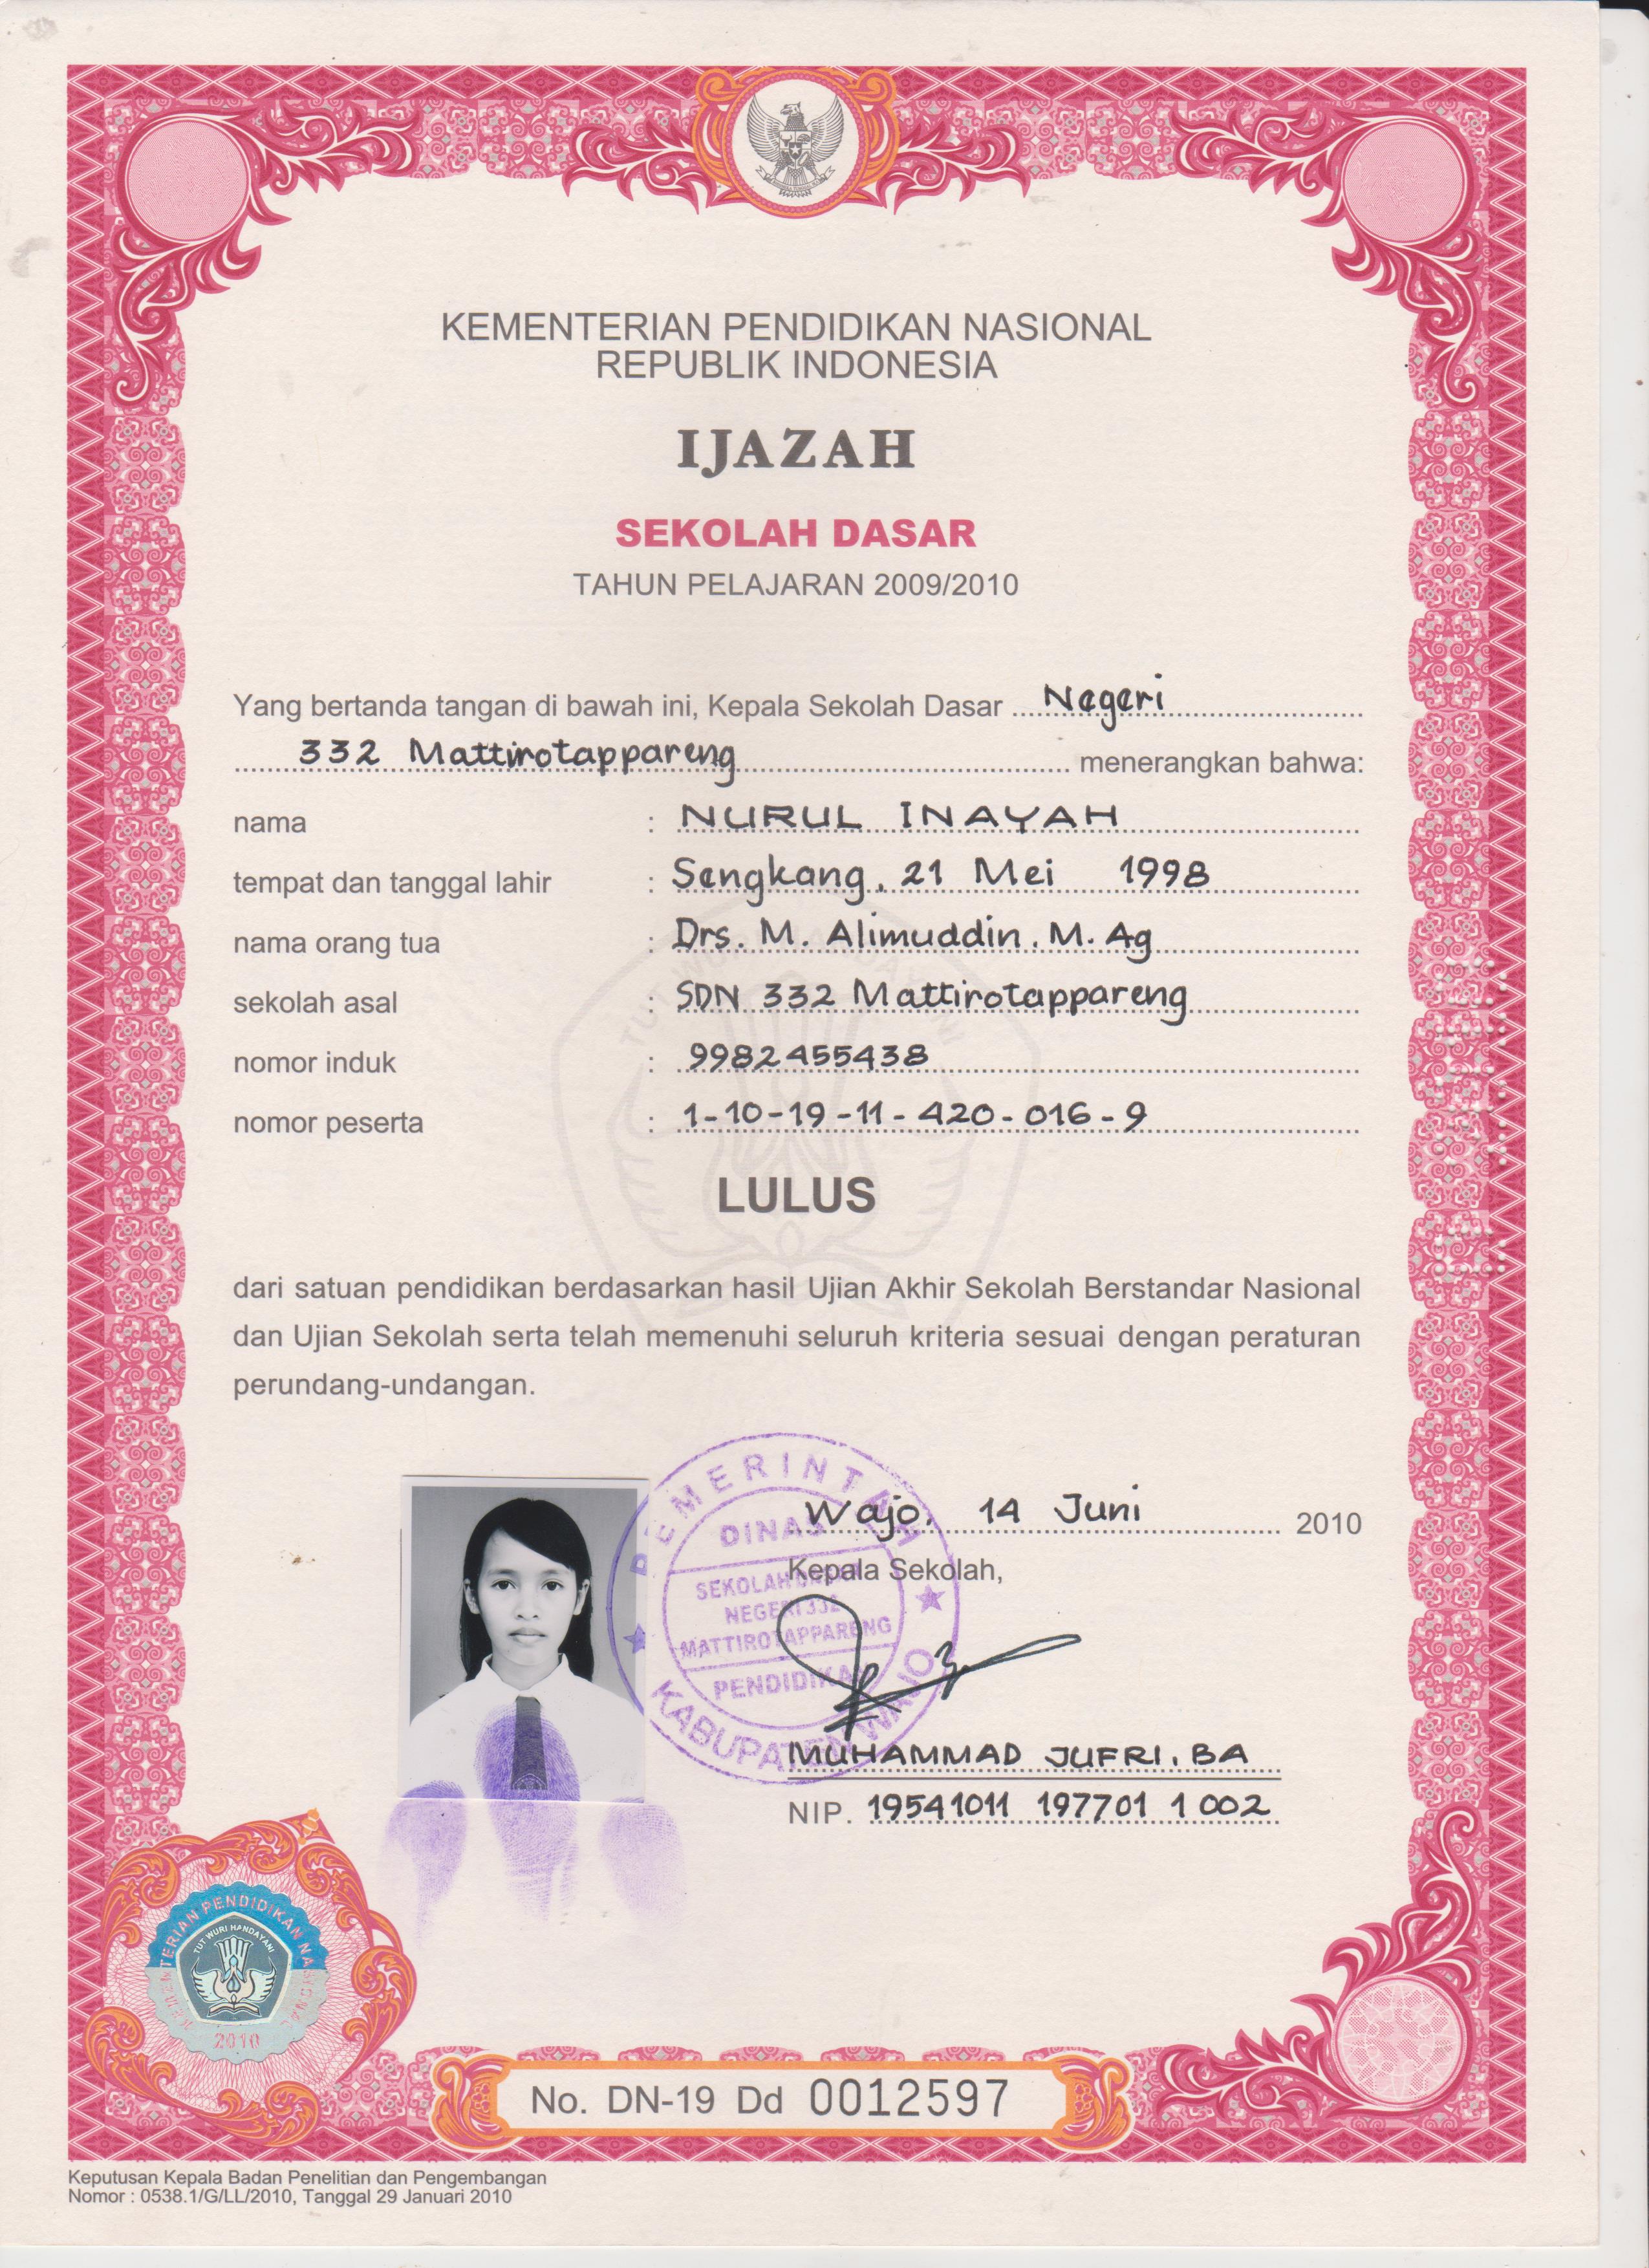 KEMENTERIAN PENDIDIKAN NASIONAL
REPUBLIK INDONESIA
IJAZAH
SEKOLAH DASAR
TAHUN PELAJARAN 2009/2010
Yang bertanda tangan di bawah ini, Kepala Sekolah Dasar Negeri
332 Mattirotappareng menerangkan bahwa:
nama : NURUL INAYAH
tempat dan tanggal lahir : Sengkang, 21 Mei 1998
nama orang tua : Drs. M. Alimuddin. M. Ag
sekolah asal : SDN 332 Mattirotappareng
nomor induk : 9982455438
nomor peserta : 1-10-19-11-420-016-9
LULUS
dari satuan pendidikan berdasarkan hasil Ujian Akhir Sekolah Berstandar Nasional
dan Ujian Sekolah serta telah memenuhi seluruh kriteria sesuai dengan peraturan
perundang-undangan.
Wajo, 14 Juni 2010
Kepala Sekolah,
PEMERINTAH
DINAS
SEKOLAH DASAR
NEGERI 332
MATTIROTAPPARENG
PENDIDIKAN
KABUPATEN WAJO
MUHAMMAD JUFRI. BA
NIP. 19541011 197701 1 002
KEMENTERIAN PENDIDIKAN NASIONAL
TUT WURI HANDAYANI
2010
No. DN-19 Dd 0012597
Keputusan Kepala Badan Penelitian dan Pengembangan
Nomor : 0538.1/G/LL/2010, Tanggal 29 Januari 2010